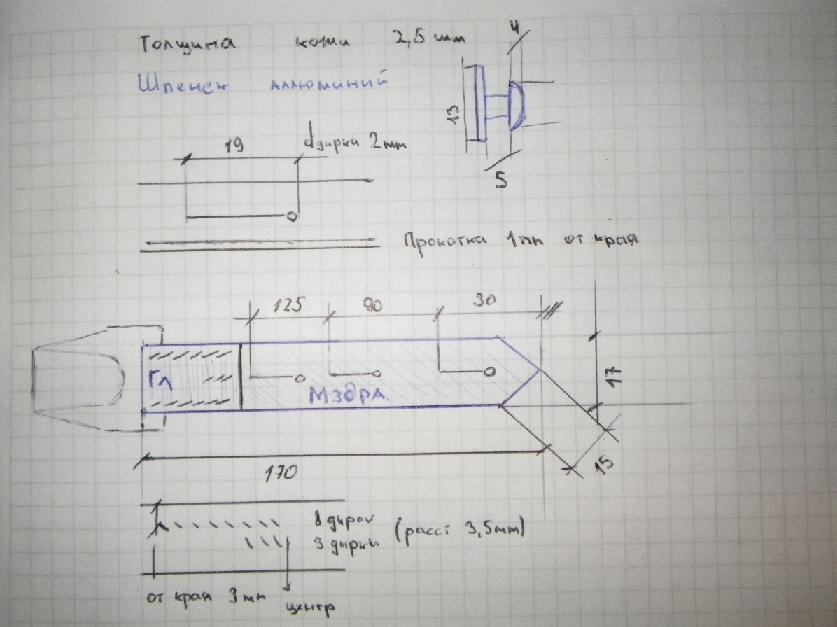 Толщина кожи 2,5 мм
Шпенек аллюминий
4
13
5
19 dдирки 2мм
Прокатка 1мм от края
125 90 30
Гл
Мздра
17
15
170
8 дирок
3 дирки (расст 3,5мм)
от края 3мм
центр